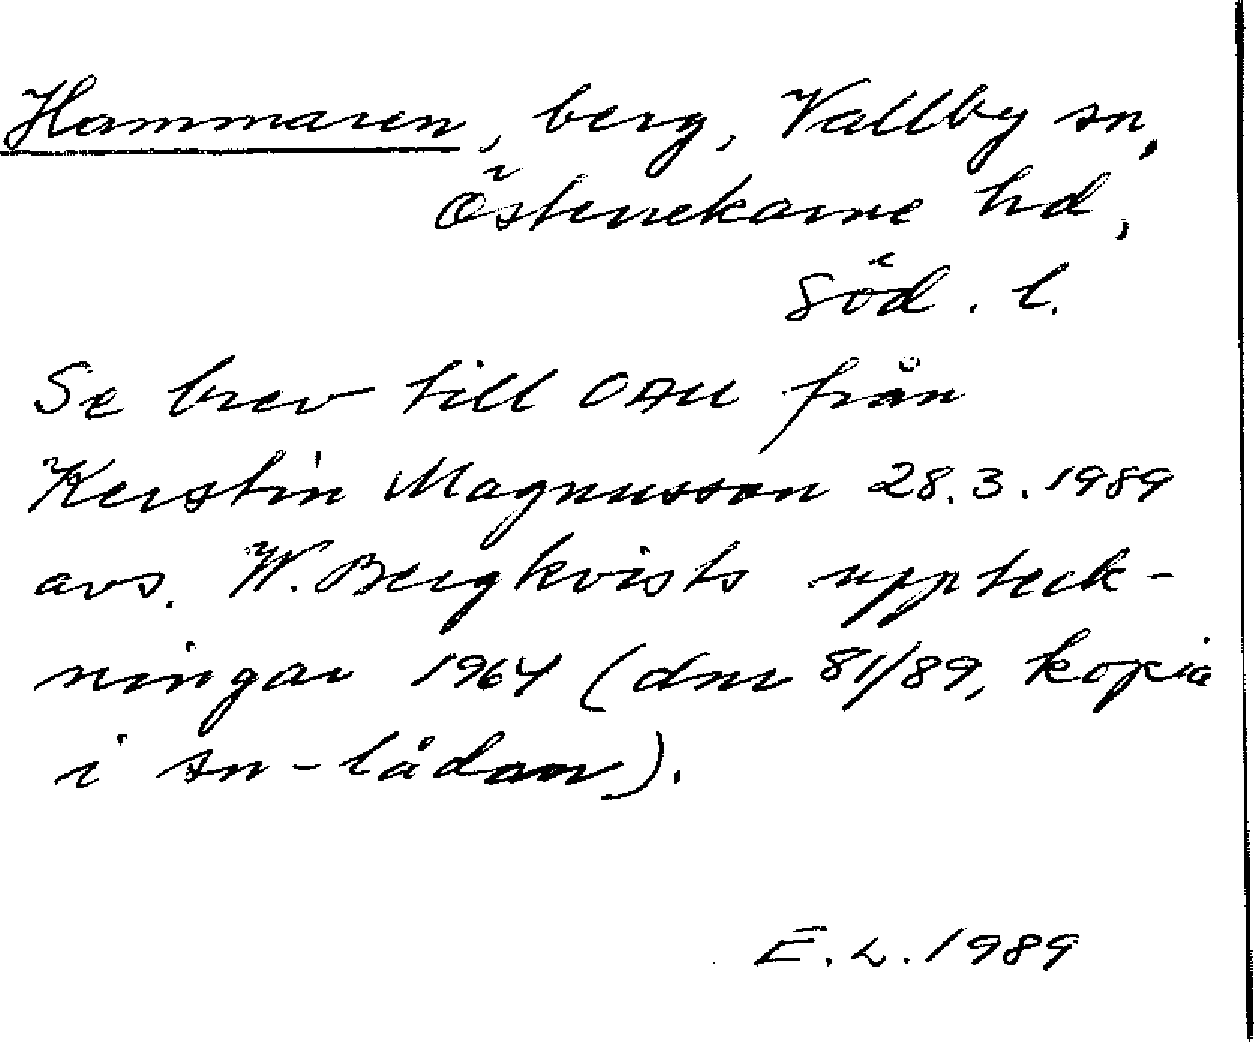 Hammaren, berg, Vallby sn,
Österrekarne hd,
Söd. l.
Se brev till OAU från
Kerstin Magnusson 28.3.1989
avs. W. Bergkvists uppteck-
ningar 1964 (dnr 81/89, kopia
i sn-lådan).
E. L. 1989